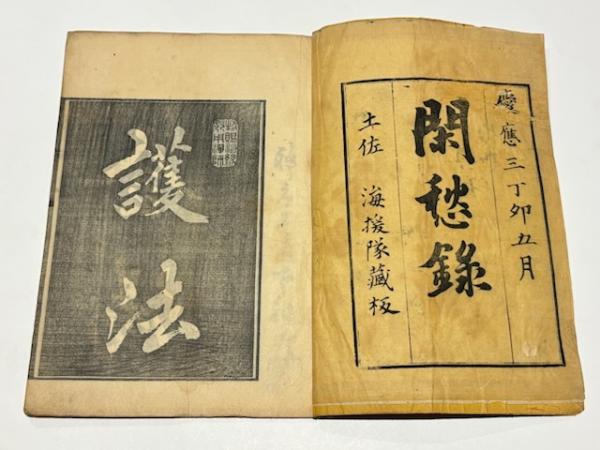 慶應三丁卯五月
閑愁録
土佐 海援隊藏板
護法